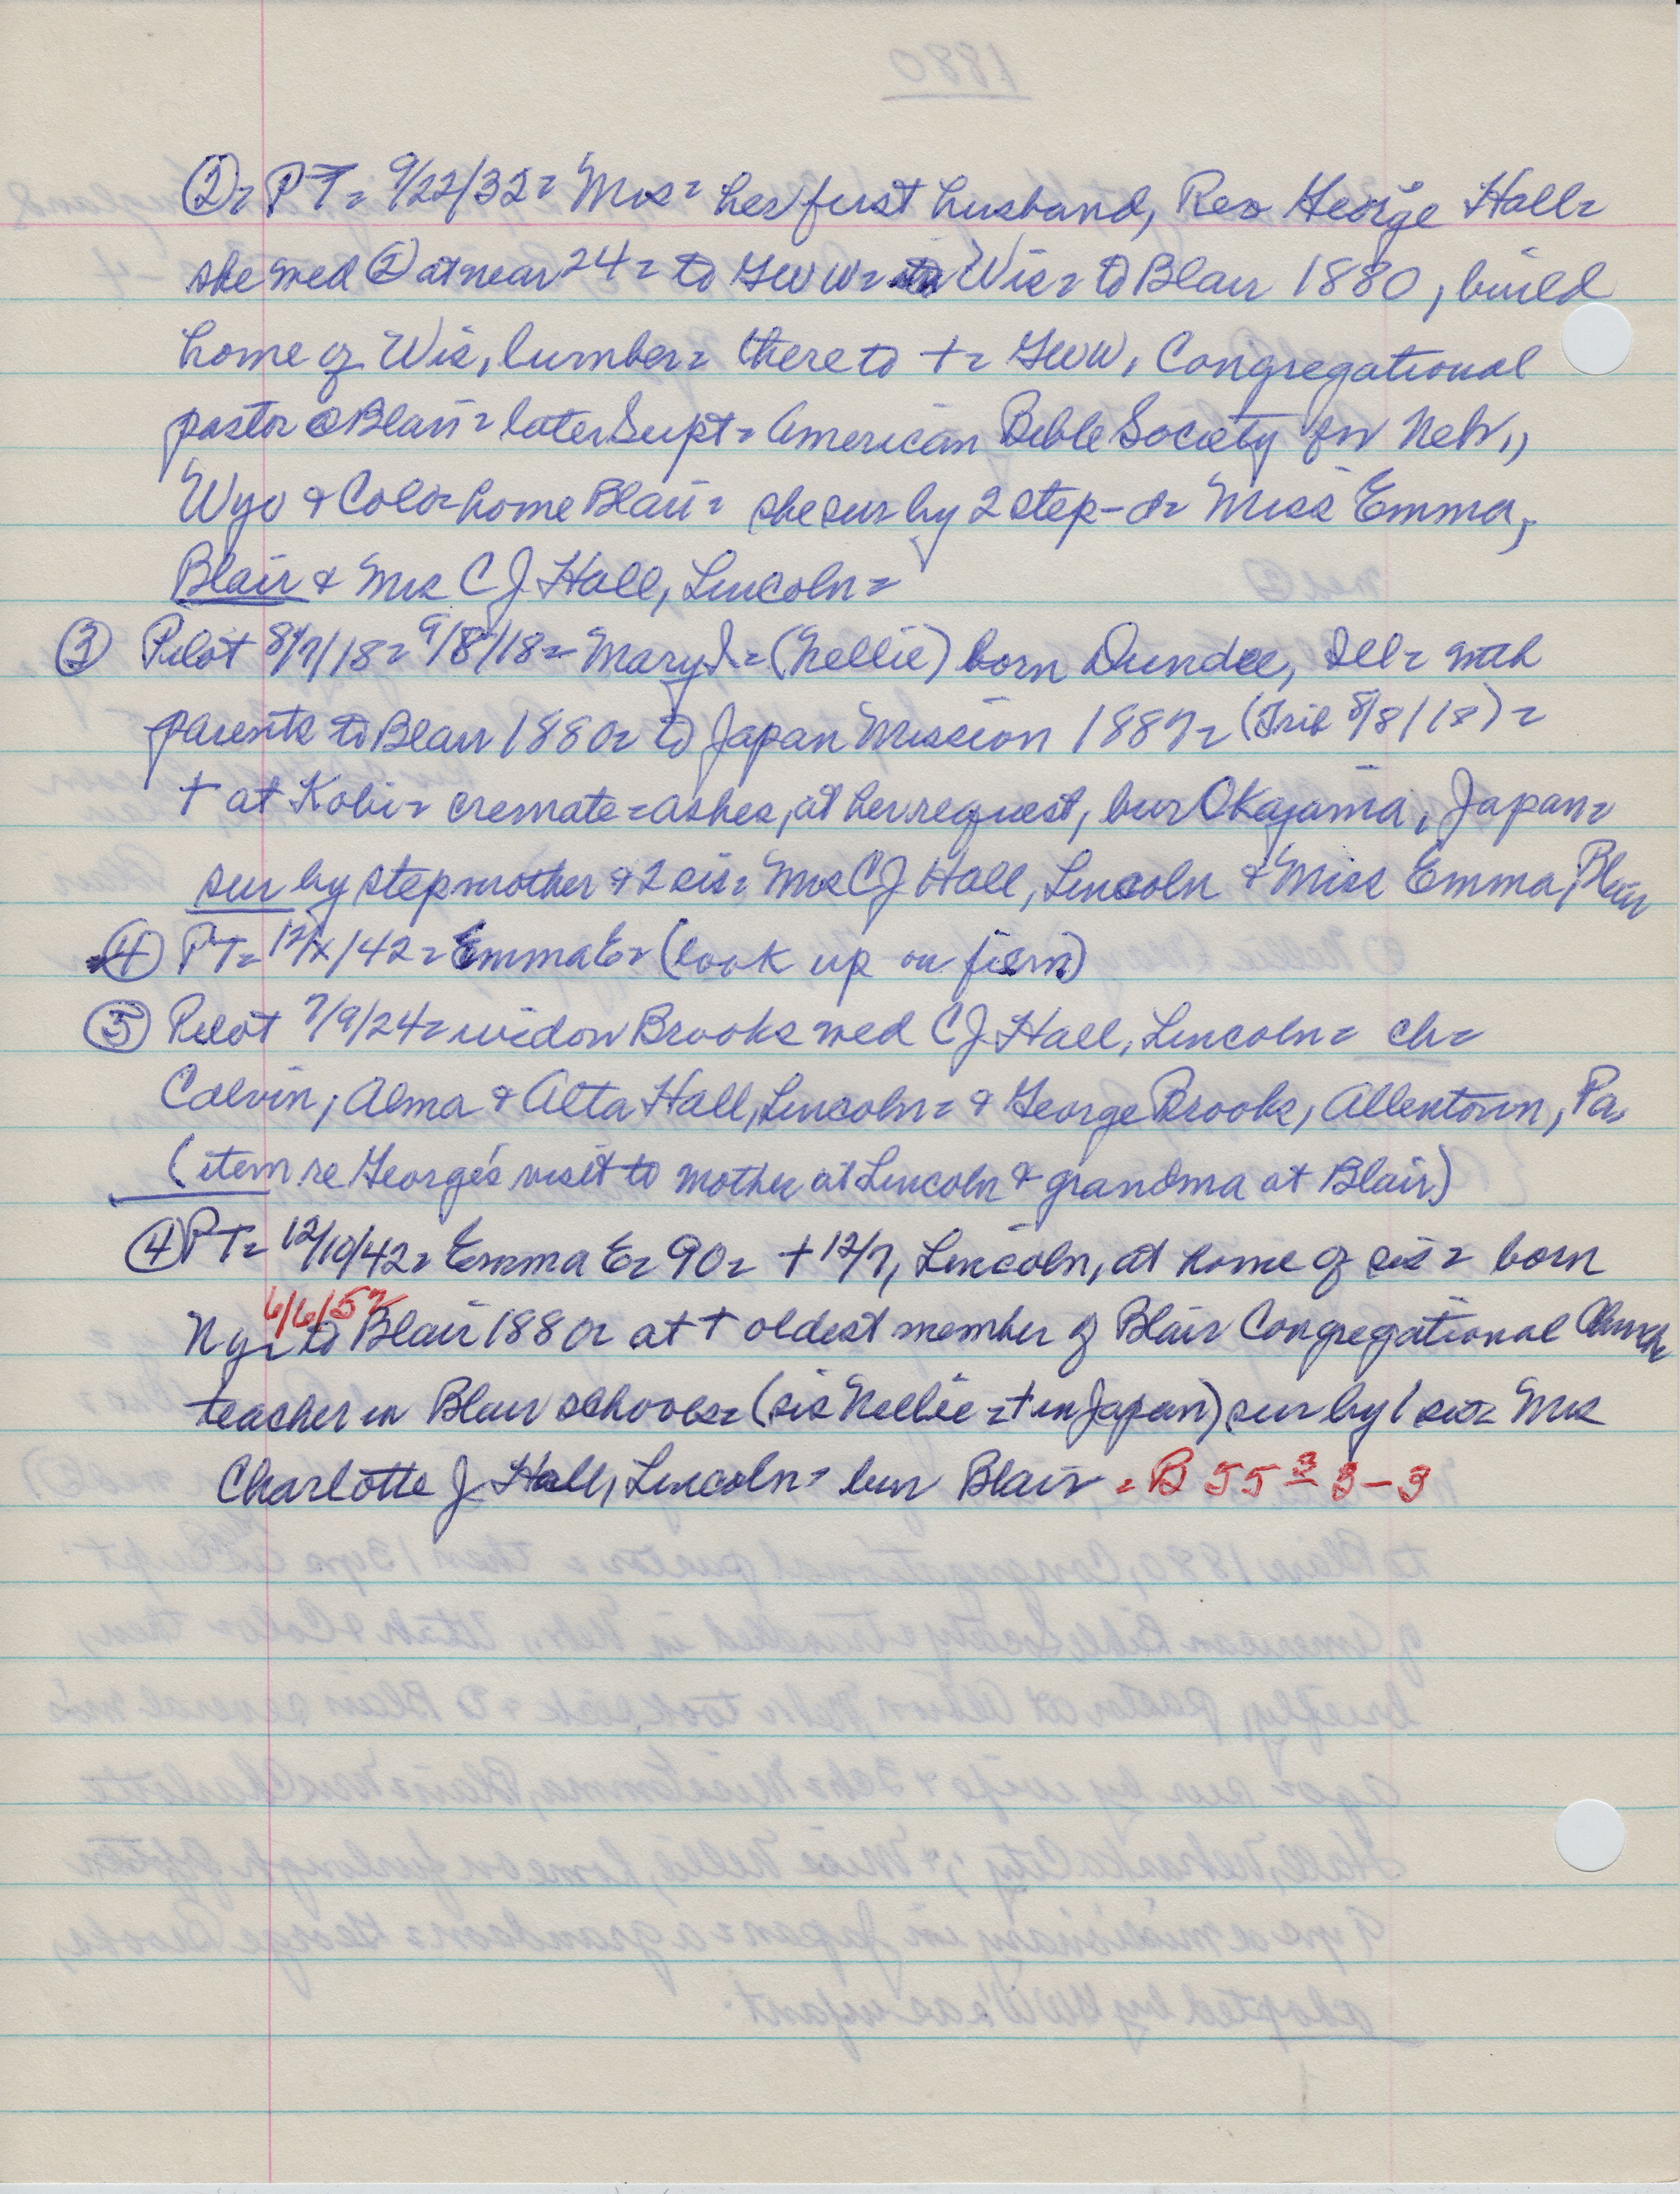 1880
② = PT = 9/22/32 = Mrs = her first husband, Rev George Hall =
she wed ② at near 24 = to GWW = Wis = to Blair 1880, build
home of Wis, lumber = there to † = GWW, Congregational
pastor @ Blair = later Supt = American Bible Society for Neb.,
Wyo & Colo = home Blair = she sur by 2 step-d = Miss Emma,
Blair & Mrs C J Hall, Lincoln =
③ Pilot 8/7/18 = 9/8/18 = Mary J = (Nellie) born Dundee, Ill = with
parents to Blair 1880 = to Japan Mission 1887 = (Trib 8/8/18) =
† at Kobi = cremate = ashes, at her request, bur Okayama, Japan =
sur by stepmother & 2 sis = Mrs C J Hall, Lincoln & Miss Emma, Blair
④ PT = 12/x/42 = Emma E = (look up on film)
⑤ Pilot 7/9/24 = widow Brooks wed C J Hall, Lincoln = ch =
Calvin; Alma & Alta Hall, Lincoln = & George Brooks, Allentown, Pa.
(item re George's visit to mother at Lincoln & grandma at Blair)
④ PT = 12/10/42 = Emma E = 90 = † 12/7, Lincoln, at home of sis = born
6/6/52
Ny = to Blair 1880 = at † oldest member of Blair Congregational Church
teacher in Blair schools = (sis Nellie = † in Japan) sur by 1 sis = Mrs
Charlotte J Hall, Lincoln = bur Blair = B 55 = 3 - 3